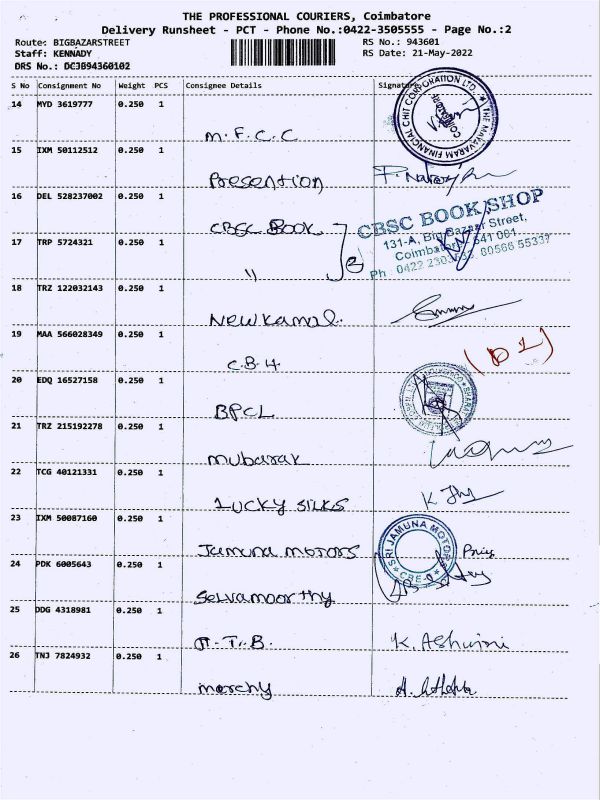 THE PROFESSIONAL COURIERS, Coimbatore
Delivery Runsheet - PCT - Phone No.:0422-3505555 - Page No.:2
Route: BIGBAZARSTREET RS No.: 943601
Staff: KENNADY RS Date: 21-May-2022
DRS No.: DCJB94360102
S No Consignment No Weight PCS Consignee Details Signature
14 MYD 3619777 0.250 1
M.F.C.C
THE MAYAVARAM FINANCIAL CHIT CORPORATION LTD.
COIMBATORE
15 IXM 50112512 0.250 1
Presention
16 DEL 528237002 0.250 1
CBSC Book
CBSC BOOK SHOP
131-A, Big Bazaar Street,
Coimbatore - 641 001.
Ph : 0422 80566 55337
17 TRP 5724321 0.250 1
" 2
18 TRZ 122032143 0.250 1
New Kamal.
19 MAA 566028349 0.250 1
C.B.H. (D1)
20 EDQ 16527158 0.250 1
BPCL
21 TRZ 215192278 0.250 1
mubarak
22 TCG 40121331 0.250 1
LUCKY SILKS
23 IXM 50087160 0.250 1
Jamuna motors
SRI JAMUNA MOTORS
CBE-1
24 PDK 6005643 0.250 1
Selvamoorthy
25 DDG 4318981 0.250 1
π.T.B. K. Ashwini
26 TNJ 7824932 0.250 1
marchy